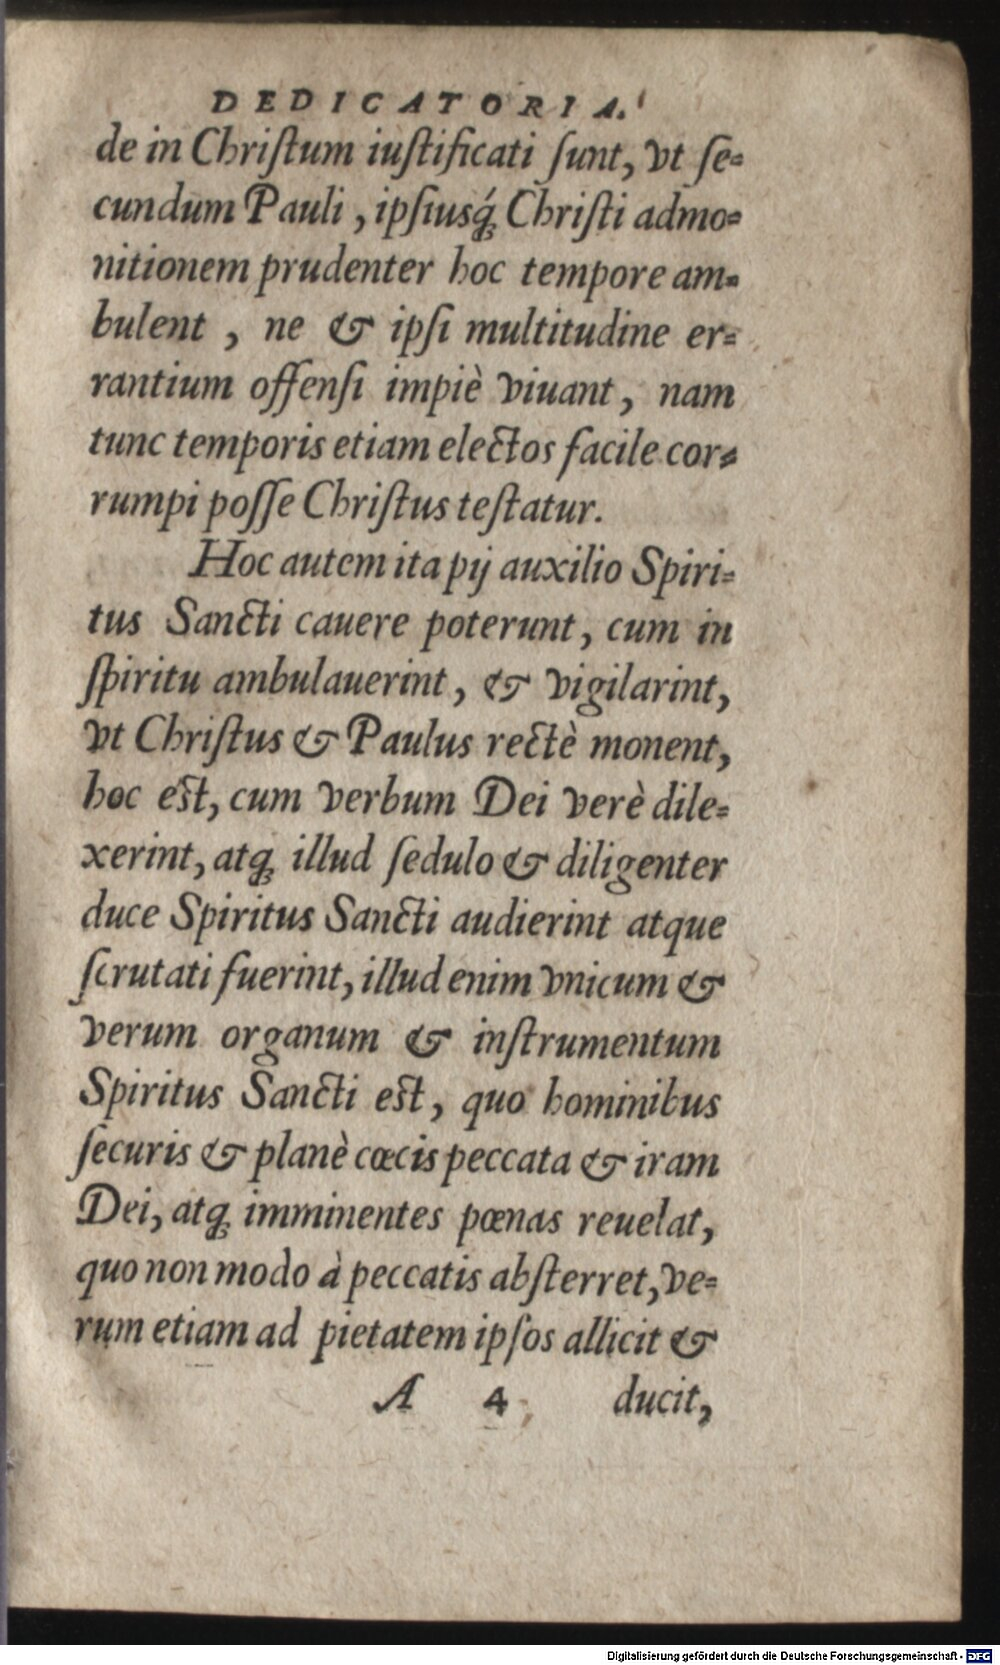 DEDICATORIA.
de in Chriſtum iuſtificati ſunt, vt ſe-
cundum Pauli, ipſiusq́; Chriſti admo-
nitionem prudenter hoc tempore am-
bulent, ne & ipſi multitudine er-
rantium offenſi impiè viuant, nam
tunc temporis etiam electos facile cor-
rumpi poſſe Chriſtus teſtatur.
Hoc autem ita pij auxilio Spiri-
tus Sancti cauere poterunt, cum in
ſpiritu ambulauerint, & vigilarint,
vt Chriſtus & Paulus rectè monent,
hoc eſt, cum verbum Dei verè dile-
xerint, atq; illud ſedulo & diligenter
duce Spiritus Sancti audierint atque
ſcrutati fuerint, illud enim vnicum &
verum organum & inſtrumentum
Spiritus Sancti eſt, quo hominibus
ſecuris & planè cœcis peccata & iram
Dei, atq; imminentes pœnas reuelat,
quo non modo à peccatis abſterret, ve-
rum etiam ad pietatem ipſos allicit &
A 4 ducit,
Digitalisierung gefördert durch die Deutsche Forschungsgemeinschaft - DFG